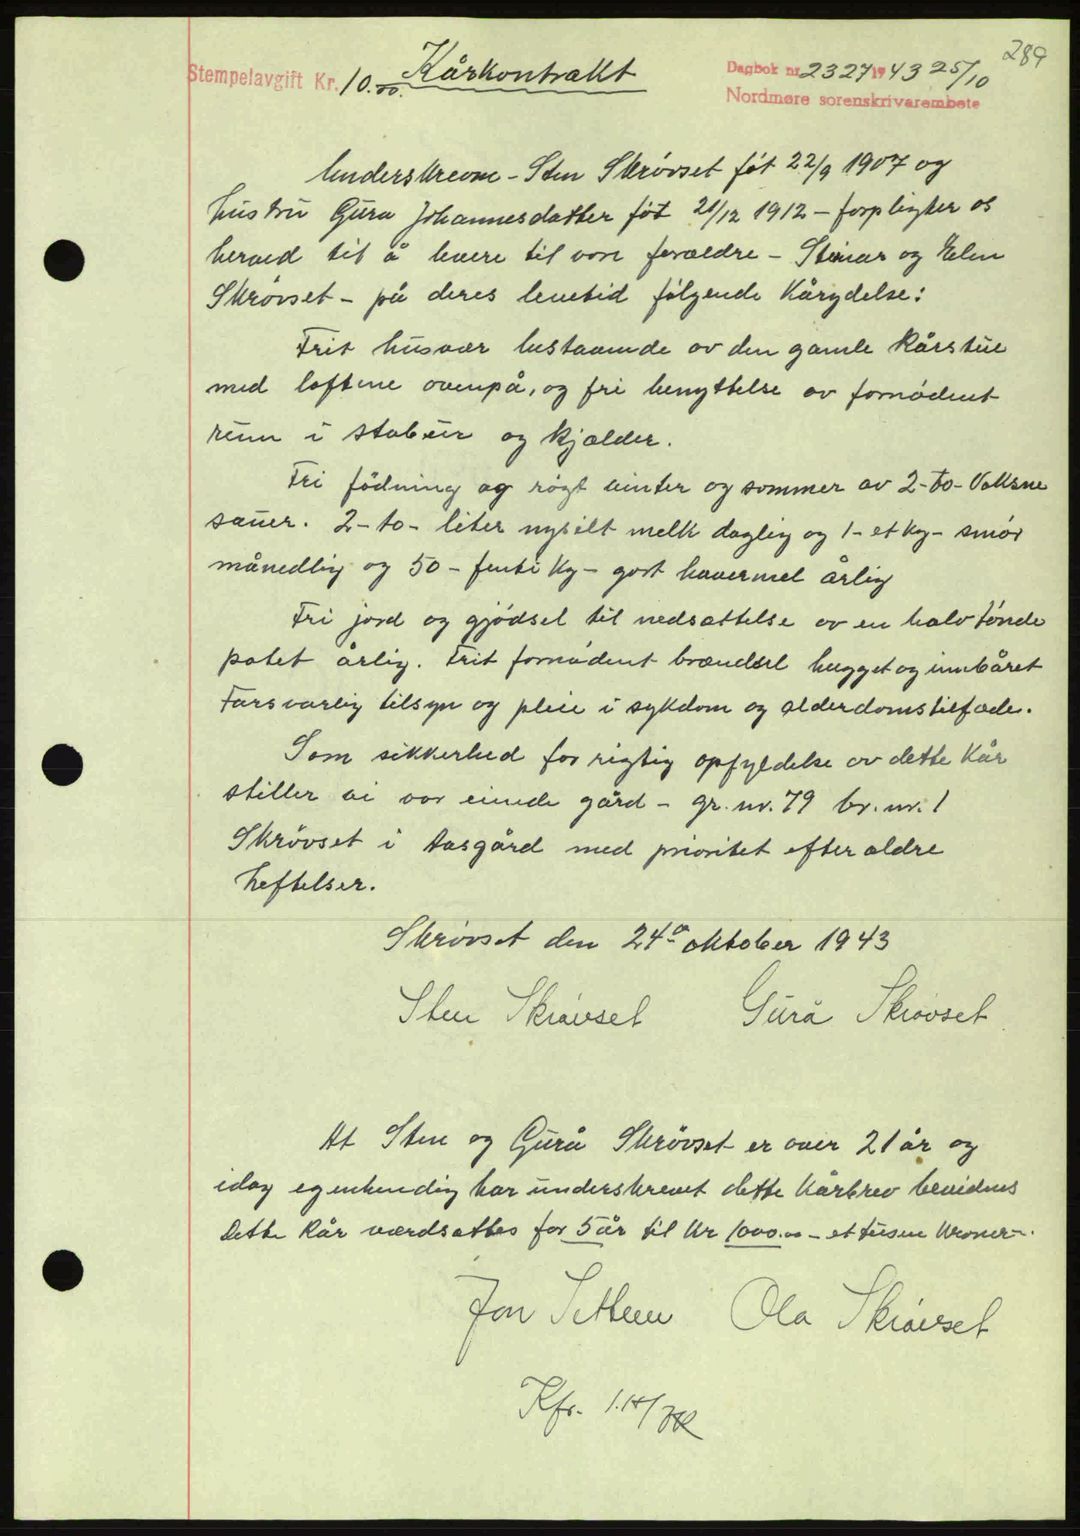 289
Stempelavgift Kr. 10.00. Kårkontrakt
Dagbok nr. 2327 1943 25/10
Nordmøre sorenskrivarembete
Underskrevne - Sten Skrövset föt 22/9 1907 og
hustru Gura Johannesdatter föt 21/12 1912 - forpligter os
herved til å levere til vore forældre - Steinar og Elen
Skrövset - på deres levetid följende Kårydelse:
Frit husvær bestaaende av den gamle Kårstue
med loftene ovenpå, og fri benyttelse av fornödent
rum i stabur og kjælder.
Fri födning og rögt vinter og sommer av 2-to-Voksne
sauer. 2-to- liter nysilt melk daglig og 1- et kg- smör
månedlig og 50 - femti kg - godt havermel årlig
Fri jord og gjödsel til nedsættelse av en halv tönde
potet årlig. Frit fornödent brændsel hugget og innbåret
Forsvarlig tilsyn og pleie i sykdom og alderdomstilfæde.
Som sikkerhed for rigtig opfyldelse av dette Kår
stiller vi vor eiende gård - gr. nr. 79 br. nr. 1
Skrövset i Aasgård med prioritet efter ældre
heftelser.
Skrövset den 24de oktober 1943
Sten Skrövset Gurå Skrövset
At Sten og Gurå Skrövset er over 21 år og
idag egenhendig har underskrevet dette Kårbrev bevidnes
Dette Kår værdsættes for 5 år til Kr 1000.00 - et tusen Kroner-.
Jon Settem Ola Skrövset
Kfr.